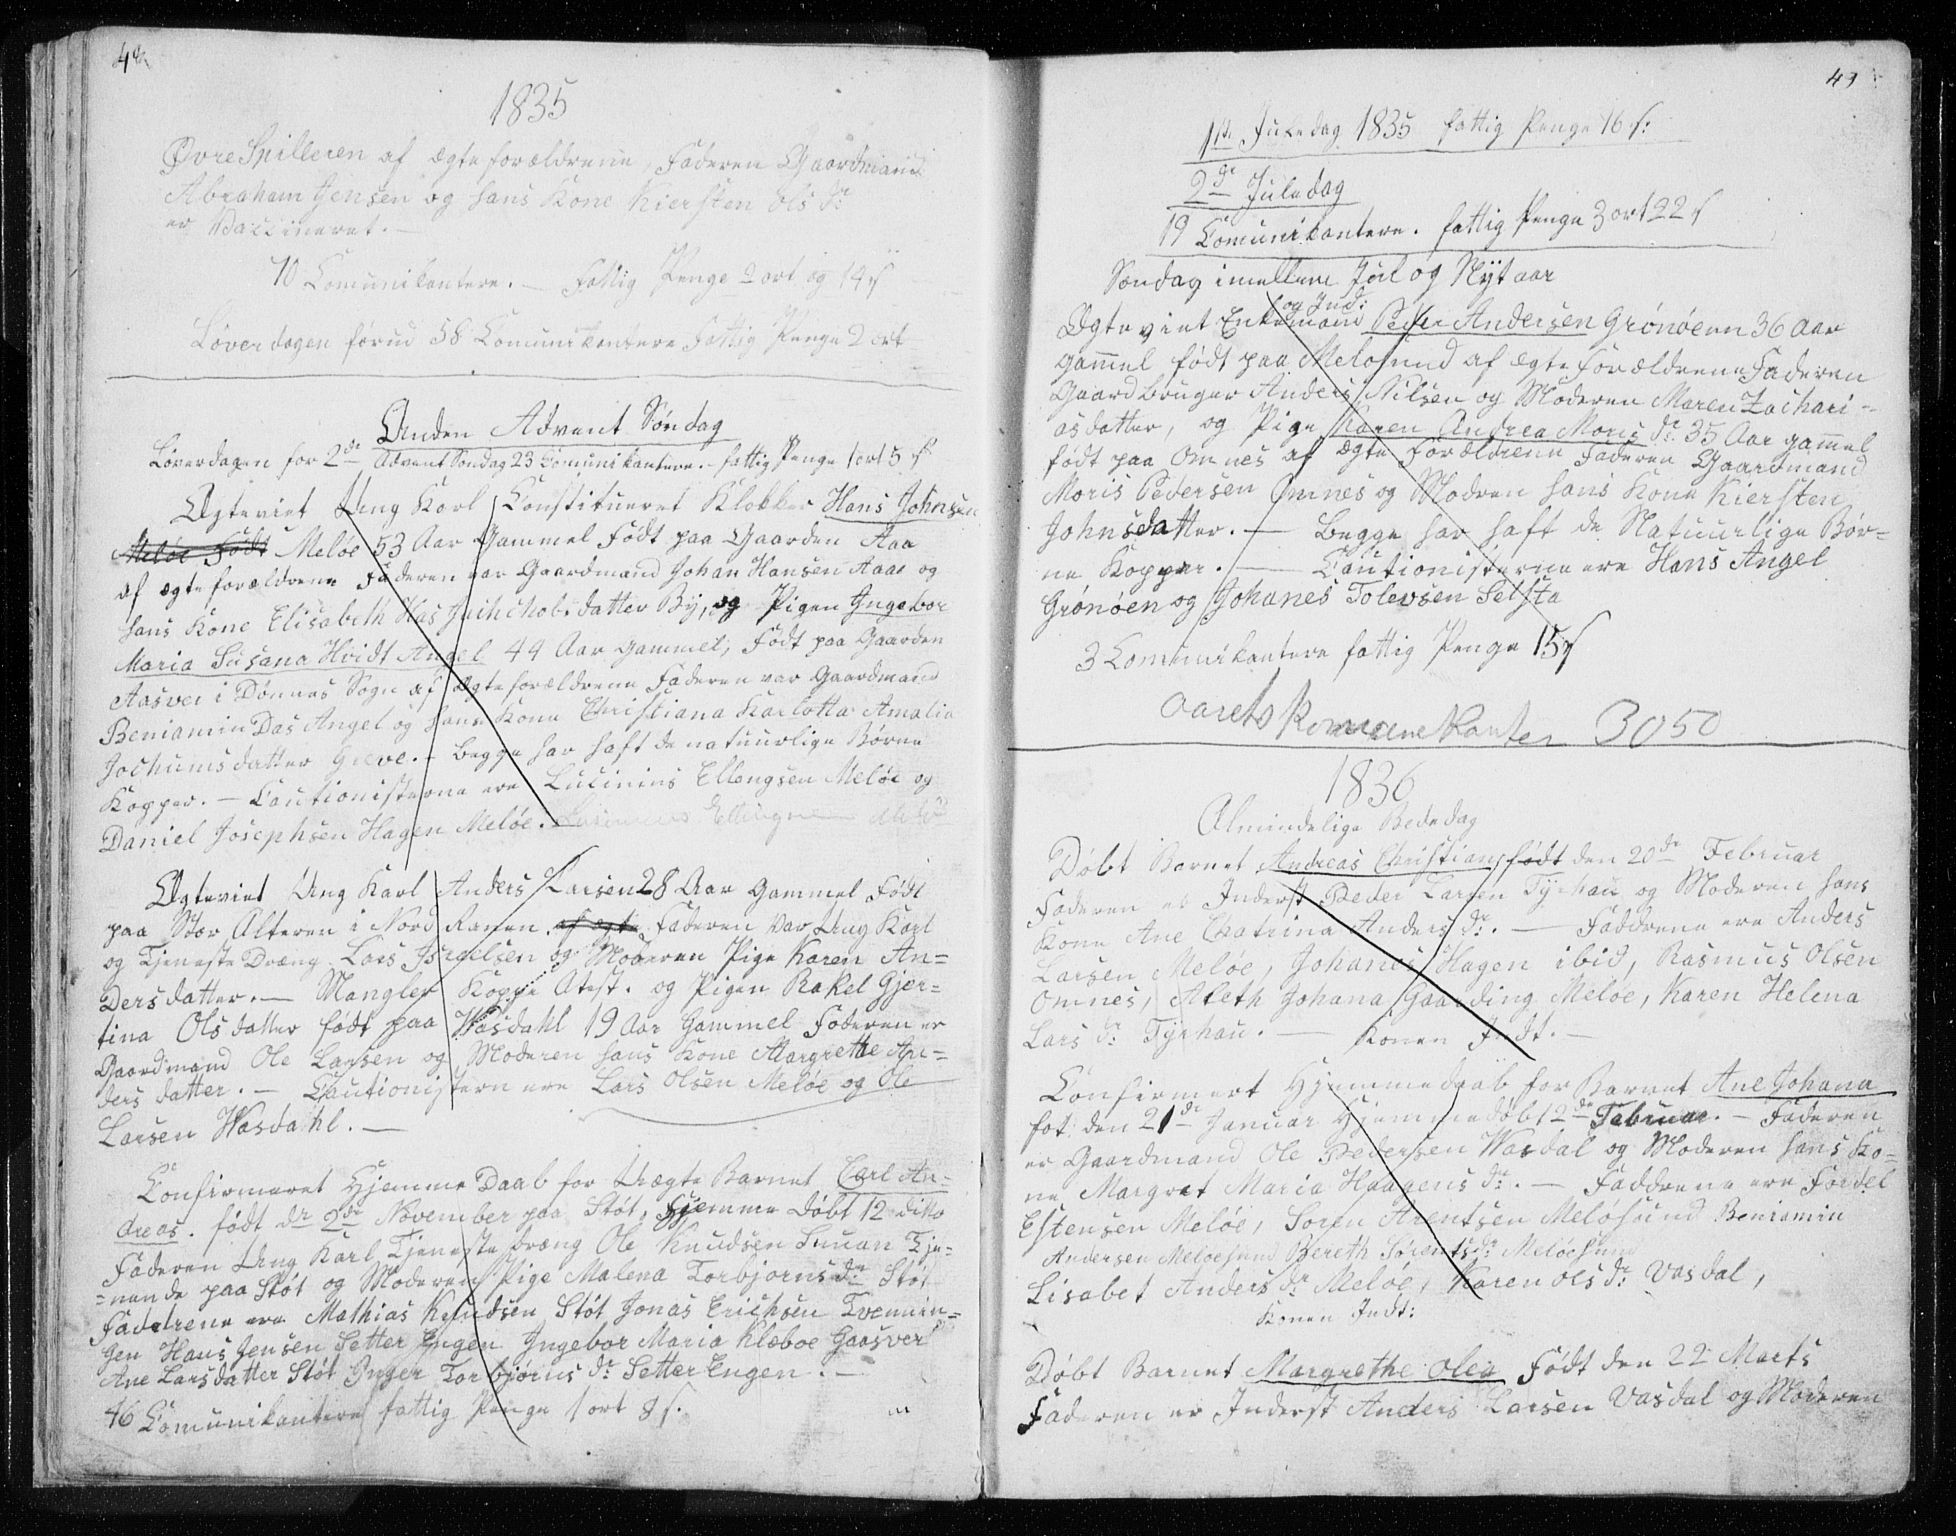 48
1835
Øvre Spilleren af ægteforældrene, Faderen Gaardmand
Abraham Jensen og hans Kone Kiersten Ols dr:
er Vaccineret. —
70 Comunikantere. — Fattig Penge 2 ort og 14 s
Løverdagen forud 58 Comunikantere Fattig Penge 2 ort
Anden Advent Søndag
Løverdagen for 2de Advent Søndag 23 Comunikantere. – fattig Penge 1 ort 5 s
Ægteviet Ung Karl Constitueret Klokker Hans Johnsen
Meløe Født Meløe 53 Aar Gammel Født paa Gaarden Aaa
af ægteforældrene Faderen var Gaardmand Johan Hansen Aaae og
hans Kone Elisabeth Has datter By, og Pigen Ingebor
Maria Susana Hvidt Angel 44 Aar gammel, Født paa Gaarden
Aasver i Dønnes Sogn af Ægteforældrene Faderen var Gaardmand
Beniamin Das Angel og hans Kone Christiana Karlotta Amalia
Jochumsdatter Greve. – begge har haft de natuurlige Børne
Kopper. – Cautionisterne ere Lucinius Ellengsen Meløe og
Daniel Josephsen Hagen Meløe.
Ægteviet Ung Karl Anders Larsen 28 Aar Gammel Født
paa Stor Alteren i Nord Ranen. af ægte Faderen var Ung Karl
og Tjeneste Dræng Lars Isralsen og Moderen Pige Karen An=
Dersdatter. — Mangler Koppe Atest. og Pigen Rakel Gjer=
tina Olsdatter født paa Wasdahl 19 Aar Gammel Faderen er
Gaardmand Ole Larsen og Moderen hans Kone Margrethe An=
dersdatter. — Cautionistern ere Lars Olsen Meløe og Ole
Larsen Wasdahl. —
Confirmeret Hjemme Daab for Uægte Barnet Carl An=
dreas. født dr 2de November paa Støt, Hjemme Døbt 12 ditto
Faderen Ung Karl Tjeneste dræng Ole Knudsen Tje=
=nende paa Støt og Moderen Pige Malena Torbjørnsdr Støt
Fadrene ere Mathias Knudsen Støt Jonas Erichsen Tvennin=
gen Hans Jensen Setter Engen Ingebor Maria Klæboe Gaasver
Ane Larsdatter Støt Inger Torbjørns dr Setter Engen. —
46 Comunikantere fattig Penge 1 ort 8 s.
49
1ste Juledag 1835 fattig Penge 16 s:
2de Juledag
19 Comunikantere. fattig Penge 3 ort 22 s
Søndag imellem Jul og Nytaar
og Ind:
Ægteviet Enkemand Peder Andersen Grønøen 36 Aar
gammel født paa Meløsund af ægte Forældrene Faderen
Gaardbruger Anders Nilsen og Moderen Maren Zachari=
asdatter, og Pige Karen Andrea Moris dr: 35 Aar gammel
født paa Omnes af Ægte Forældrene Faderen Gaardmand
Moris Pedersen Omnes og Modren hans Kone Kiersten
Johnsdatter. — Begge har haft de Natuurlige Bør=
ne Kopper. — Cautionisterne ere Hans Angel
Grønøen og Johanes Tolevsen Selsta
3 Comunikantere fattig Penge 15 s
Aarets Komunekanter 3050
1836
Almindelige Bededag
Døbt Barnet Andreas Christian, født den 20de Februar
Faderen er Inderst Peder Larsen Tyrhau og Moderen hans
Kone Ane Chatrina Anders dr. — Faddrene ere Anders
Larsen Meløe, Johanes Hagen ibid, Rasmus Olsen
Omnes, Aleth Johana Gaarding Meløe, Karen Helena
Lars dr: Tyrhau. — Konen Indt. —
Confirmert Hjemmedaab for Barnet Ane Johana
føt den 21de Januar Hjemmedøbt 2de Februar. — Faderen
er Gaardmand Ole Pedersen Wasdal og Moderen hans Ko=
ne Margret Maria Haagens dr. — Faddrene ere Fordel
Estensen Meløe, Søren Arentsen Meløsund Beniamin
Andersen Meløesund Bereth Sørentsdr Meløesund
Lisabet Anders dr Meløe, Karen Ols dr: Vasdal,
Konen Indt:
Døbt Barnet Margrethe Olea Født den 22 Marts
Faderen er Inderst Anders Larsen Vasdal og Moderen